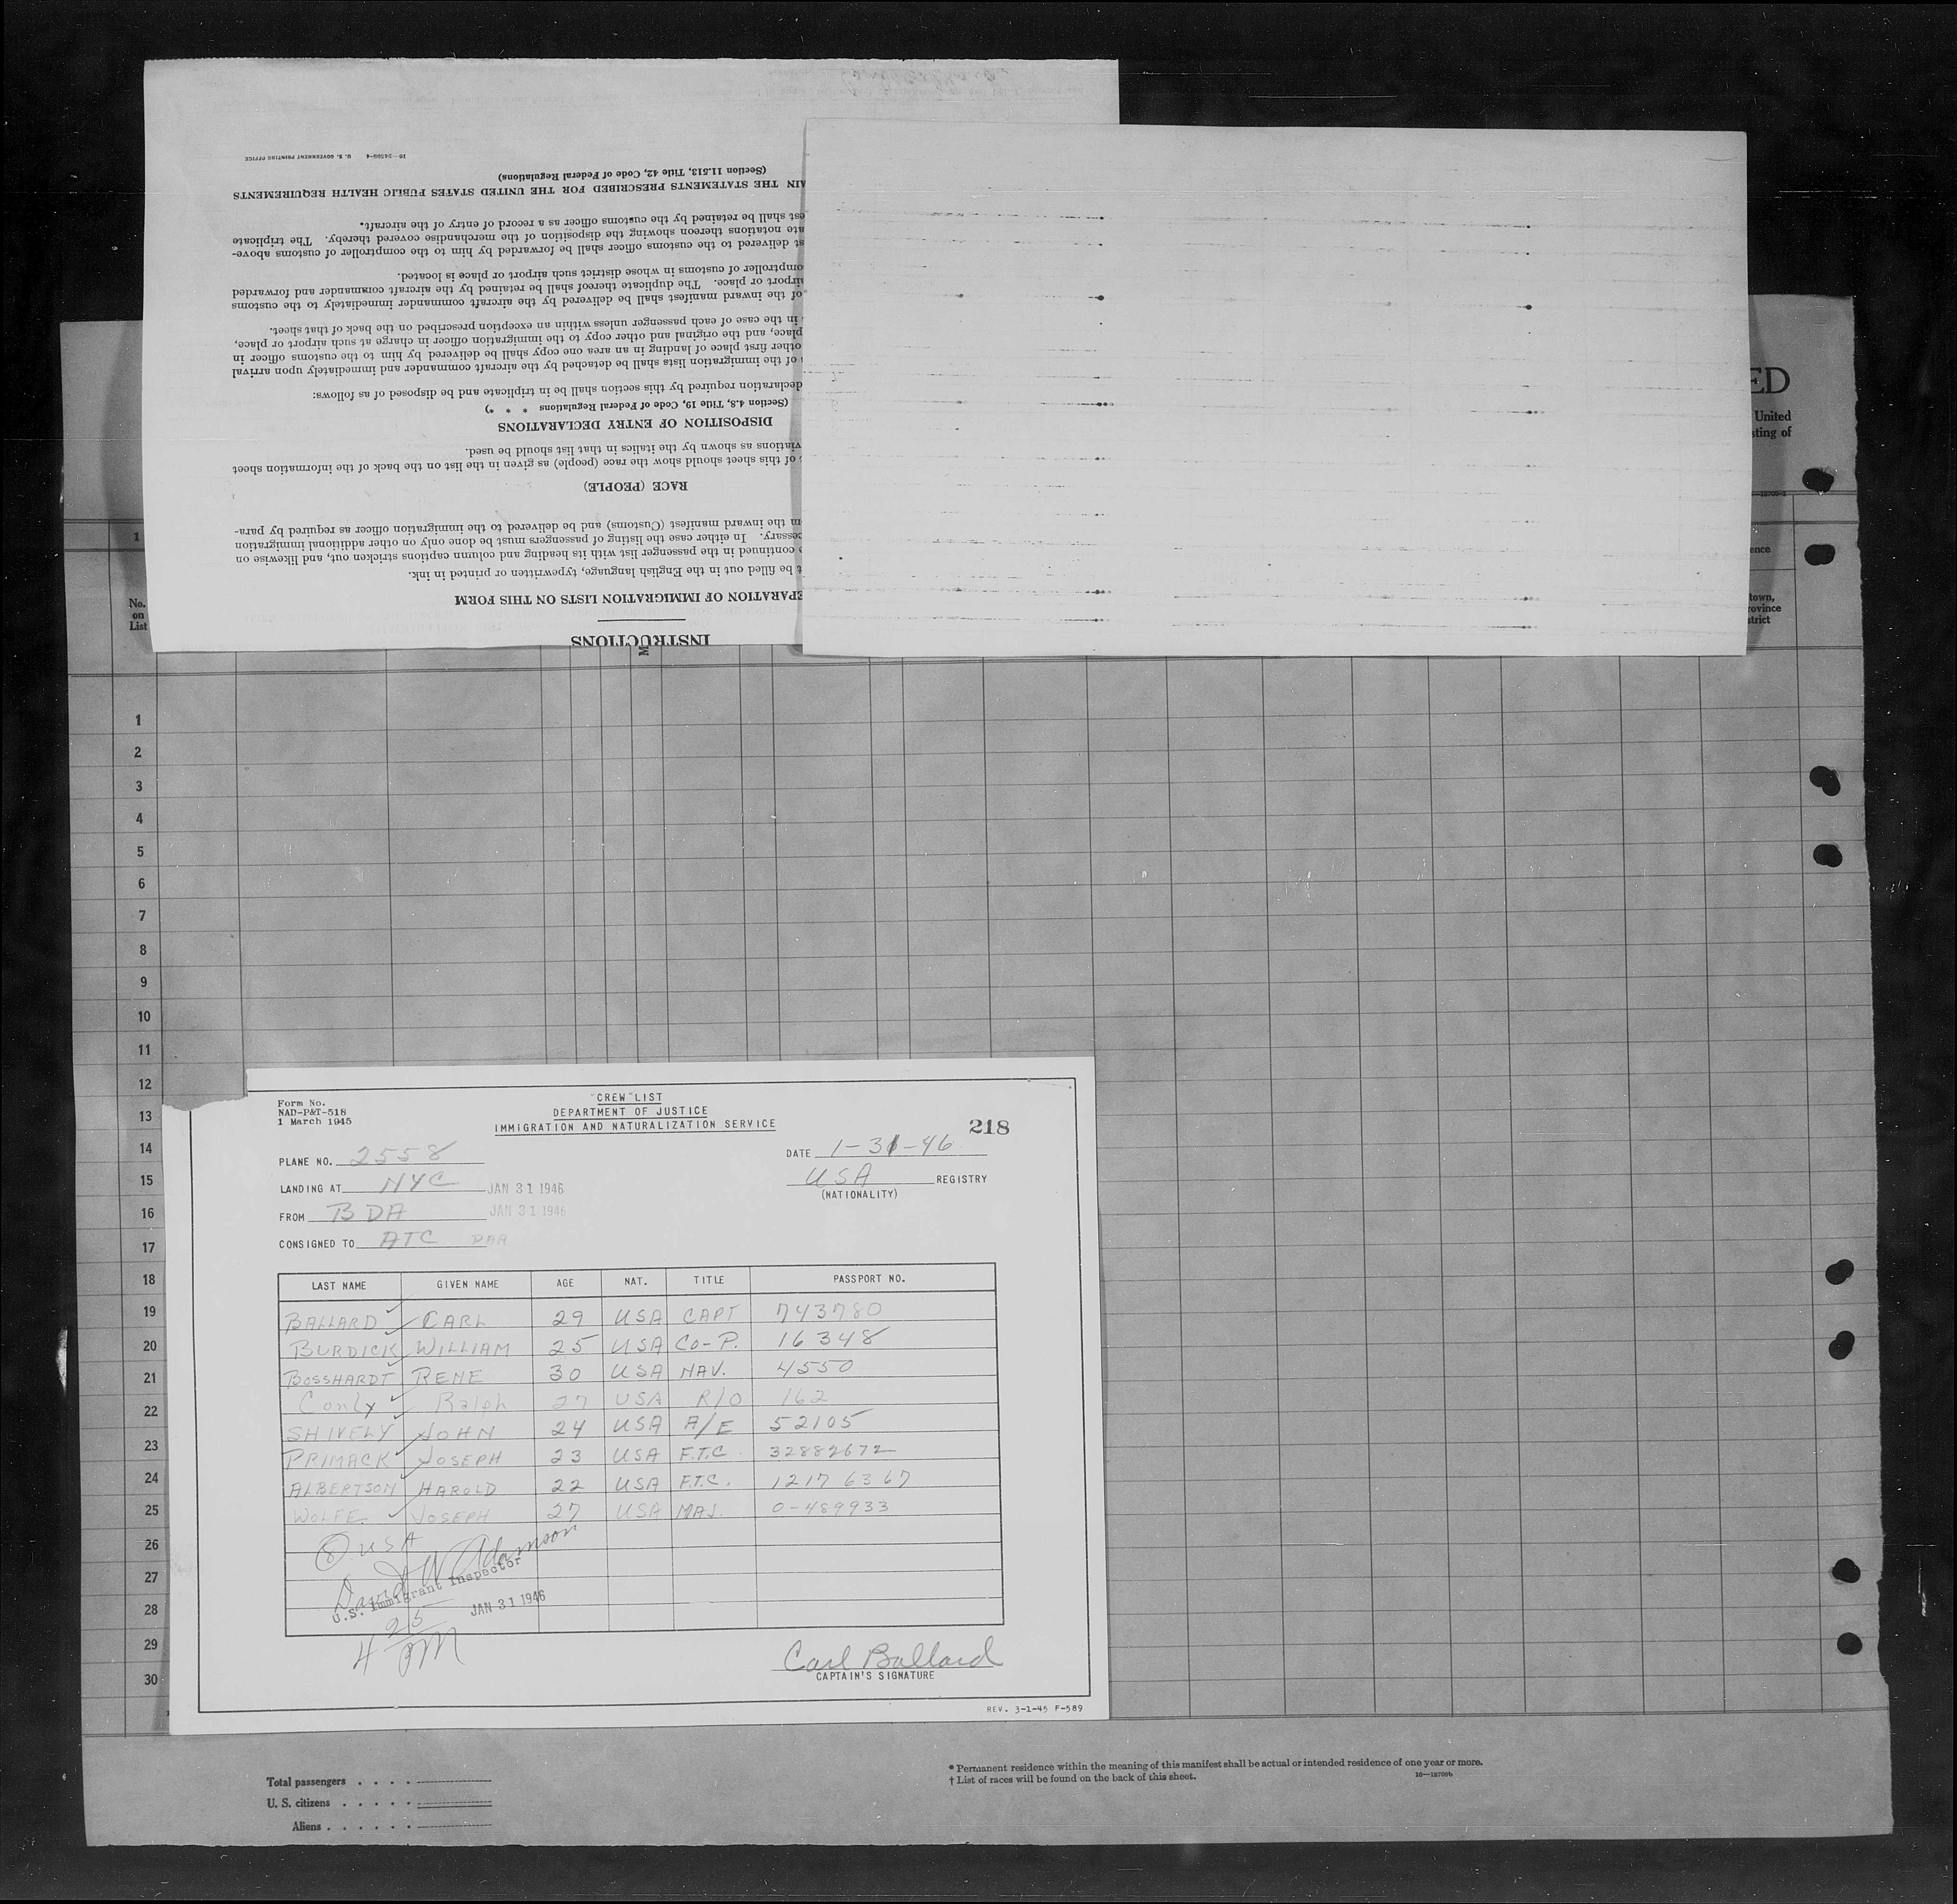 16—24599-4 U. S. GOVERNMENT PRINTING OFFICE
(Section 11.513, Title 42, Code of Federal Regulations)
THE STATEMENTS PRESCRIBED FOR THE UNITED STATES PUBLIC HEALTH REQUIREMENTS
shall be retained by the customs officer as a record of entry of the aircraft.
notations thereon showing the disposition of the merchandise covered thereby. The triplicate
delivered to the customs officer shall be forwarded by him to the comptroller of customs above-
comptroller of customs in whose district such airport or place is located.
airport or place. The duplicate thereof shall be retained by the aircraft commander and forwarded
of the inward manifest shall be delivered by the aircraft commander immediately to the customs
in the case of each passenger unless within an exception prescribed on the back of that sheet.
place, and the original and other copy to the immigration officer in charge at such airport or place,
other first place of landing in an area one copy shall be delivered by him to the customs officer in
of the immigration lists shall be detached by the aircraft commander and immediately upon arrival
declaration required by this section shall be in triplicate and be disposed of as follows:
(Section 4.8, Title 19, Code of Federal Regulations * * *)
DISPOSITION OF ENTRY DECLARATIONS
viations as shown by the italics in that list should be used.
of this sheet should show the race (people) as given in the list on the back of the information sheet
RACE (PEOPLE)
m the inward manifest (Customs) and be delivered to the immigration officer as required by para-
cessary. In either case the listing of passengers must be done only on other additional immigration
continued in the passenger list with its heading and column captions stricken out, and likewise on
t be filled out in the English language, typewritten or printed in ink.
EPARATION OF IMMIGRATION LISTS ON THIS FORM
INSTRUCTIONS
ED
United
sting of
ence
town,
rovince
strict
1
No.
on
List
M
1
2
3
4
5
6
7
8
9
10
11
12
13
14
15
16
17
18
19
20
21
22
23
24
25
26
27
28
29
30
Form No.
NAD-P&T-518
1 March 1945
"CREW" LIST
DEPARTMENT OF JUSTICE
IMMIGRATION AND NATURALIZATION SERVICE
218
PLANE NO. 2558
DATE 1-31-46
LANDING AT NYC JAN 31 1946
USA REGISTRY
(NATIONALITY)
FROM BDA JAN 31 1946
CONSIGNED TO ATC PAA
LAST NAME GIVEN NAME AGE NAT. TITLE PASSPORT NO.
BALLARD CARL 29 USA CAPT 743780
BURDICK WILLIAM 25 USA CO-P. 16348
BOSSHARDT RENE 30 USA NAV. 4550
Conly Ralph 27 USA R/O 162
SHIVELY JOHN 24 USA A/E 52105
PRIMACK JOSEPH 23 USA F.T.C. 32882672
ALBERTSON HAROLD 22 USA F.T.C. 12176367
WOLFE JOSEPH 27 USA MAJ. 0-489933
8 USA
David W Adamson
U.S. Immigrant Inspector
JAN 31 1946
4 25 PM
Carl Ballard
CAPTAIN'S SIGNATURE
REV. 3-1-45 F-589
Total passengers . . . .
U. S. citizens . . . . .
Aliens . . . . . .
* Permanent residence within the meaning of this manifest shall be actual or intended residence of one year or more.
† List of races will be found on the back of this sheet.
16—18709b